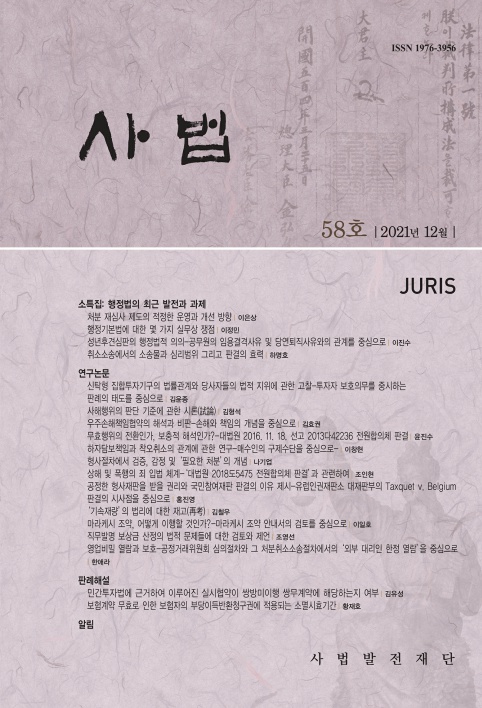 ISSN 1976-3956
法律第一號
朕이裁判所構成法을裁可
大君主
開國五百四年三月二十五日
總理大臣 金弘
사법
58호 | 2021년 12월 |
JURIS
소특집: 행정법의 최근 발전과 과제
처분 재심사 제도의 적정한 운영과 개선 방향 | 이은상
행정기본법에 대한 몇 가지 실무상 쟁점 | 이정민
성년후견심판의 행정법적 의의-공무원의 임용결격사유 및 당연퇴직사유와의 관계를 중심으로 | 이진수
취소소송에서의 소송물과 심리범위 그리고 판결의 효력 | 하명호
연구논문
신탁형 집합투자기구의 법률관계와 당사자들의 법적 지위에 관한 고찰-투자자 보호의무를 중시하는
판례의 태도를 중심으로 | 김윤종
사해행위의 판단 기준에 관한 시론(試論) | 김형석
우주손해책임협약의 해석과 비판-손해와 책임의 개념을 중심으로 | 김효권
무효행위의 전환인가, 보충적 해석인가?-대법원 2016. 11. 18. 선고 2013다42236 전원합의체 판결 | 윤진수
하자담보책임과 착오취소의 관계에 관한 연구-매수인의 구제수단을 중심으로- | 이창현
형사절차에서 검증, 감정 및 '필요한 처분'의 개념 | 나기업
상해 및 폭행의 죄 입법 체계-'대법원 2018도5475 전원합의체 판결'과 관련하여 | 조인현
공정한 형사재판을 받을 권리와 국민참여재판 판결의 이유 제시-유럽인권재판소 대재판부의 Taxquet v. Belgium
판결의 시사점을 중심으로 | 홍진영
'기속재량'의 법리에 대한 재고(再考) | 김철우
마라케시 조약, 어떻게 이행할 것인가?-마라케시 조약 안내서의 검토를 중심으로 | 이일호
직무발명 보상금 산정의 법적 문제들에 대한 검토와 제언 | 조영선
영업비밀 열람과 보호-공정거래위원회 심의절차와 그 처분취소소송절차에서의 '외부 대리인 한정 열람'을 중심으로
| 한애라
판례해설
민간투자법에 근거하여 이루어진 실시협약이 쌍방미이행 쌍무계약에 해당하는지 여부 | 김유성
보험계약 무효로 인한 보험자의 부당이득반환청구권에 적용되는 소멸시효기간 | 황재호
알림
사법발전재단